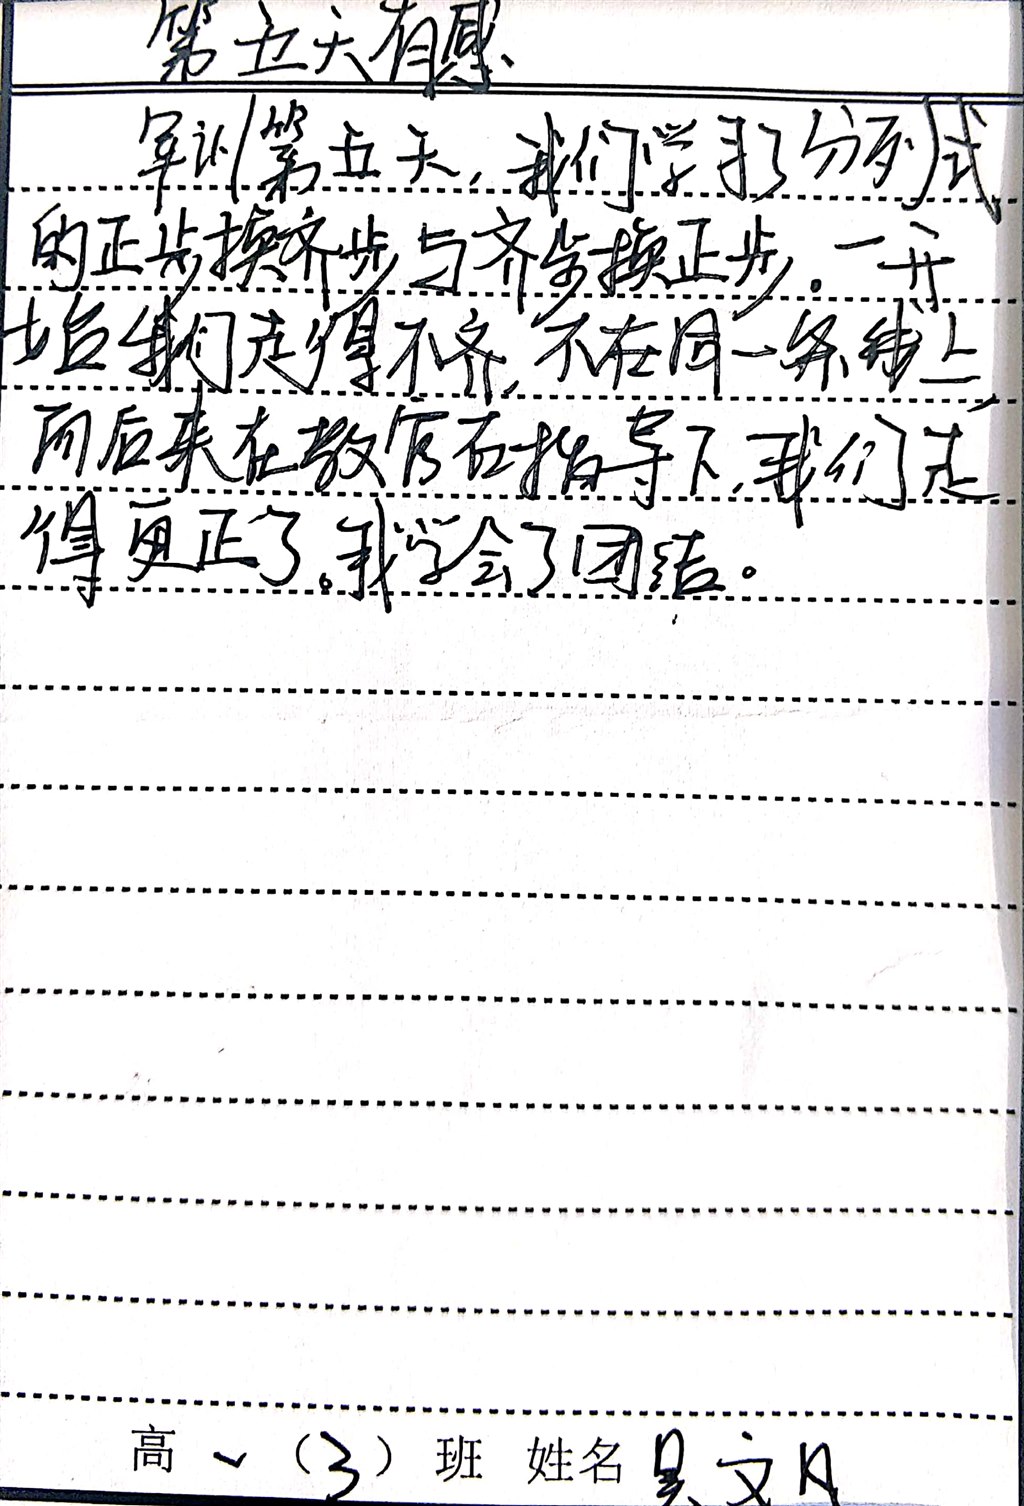 第五天有感
军训第五天，我们学习了分列式
的正步换齐步与齐步换正步。一开
始我们走得不齐，不在同一条线上，
而后来在教官在指导下，我们走
得更正了。我学会了团结。
高一（3）班 姓名 吴文月